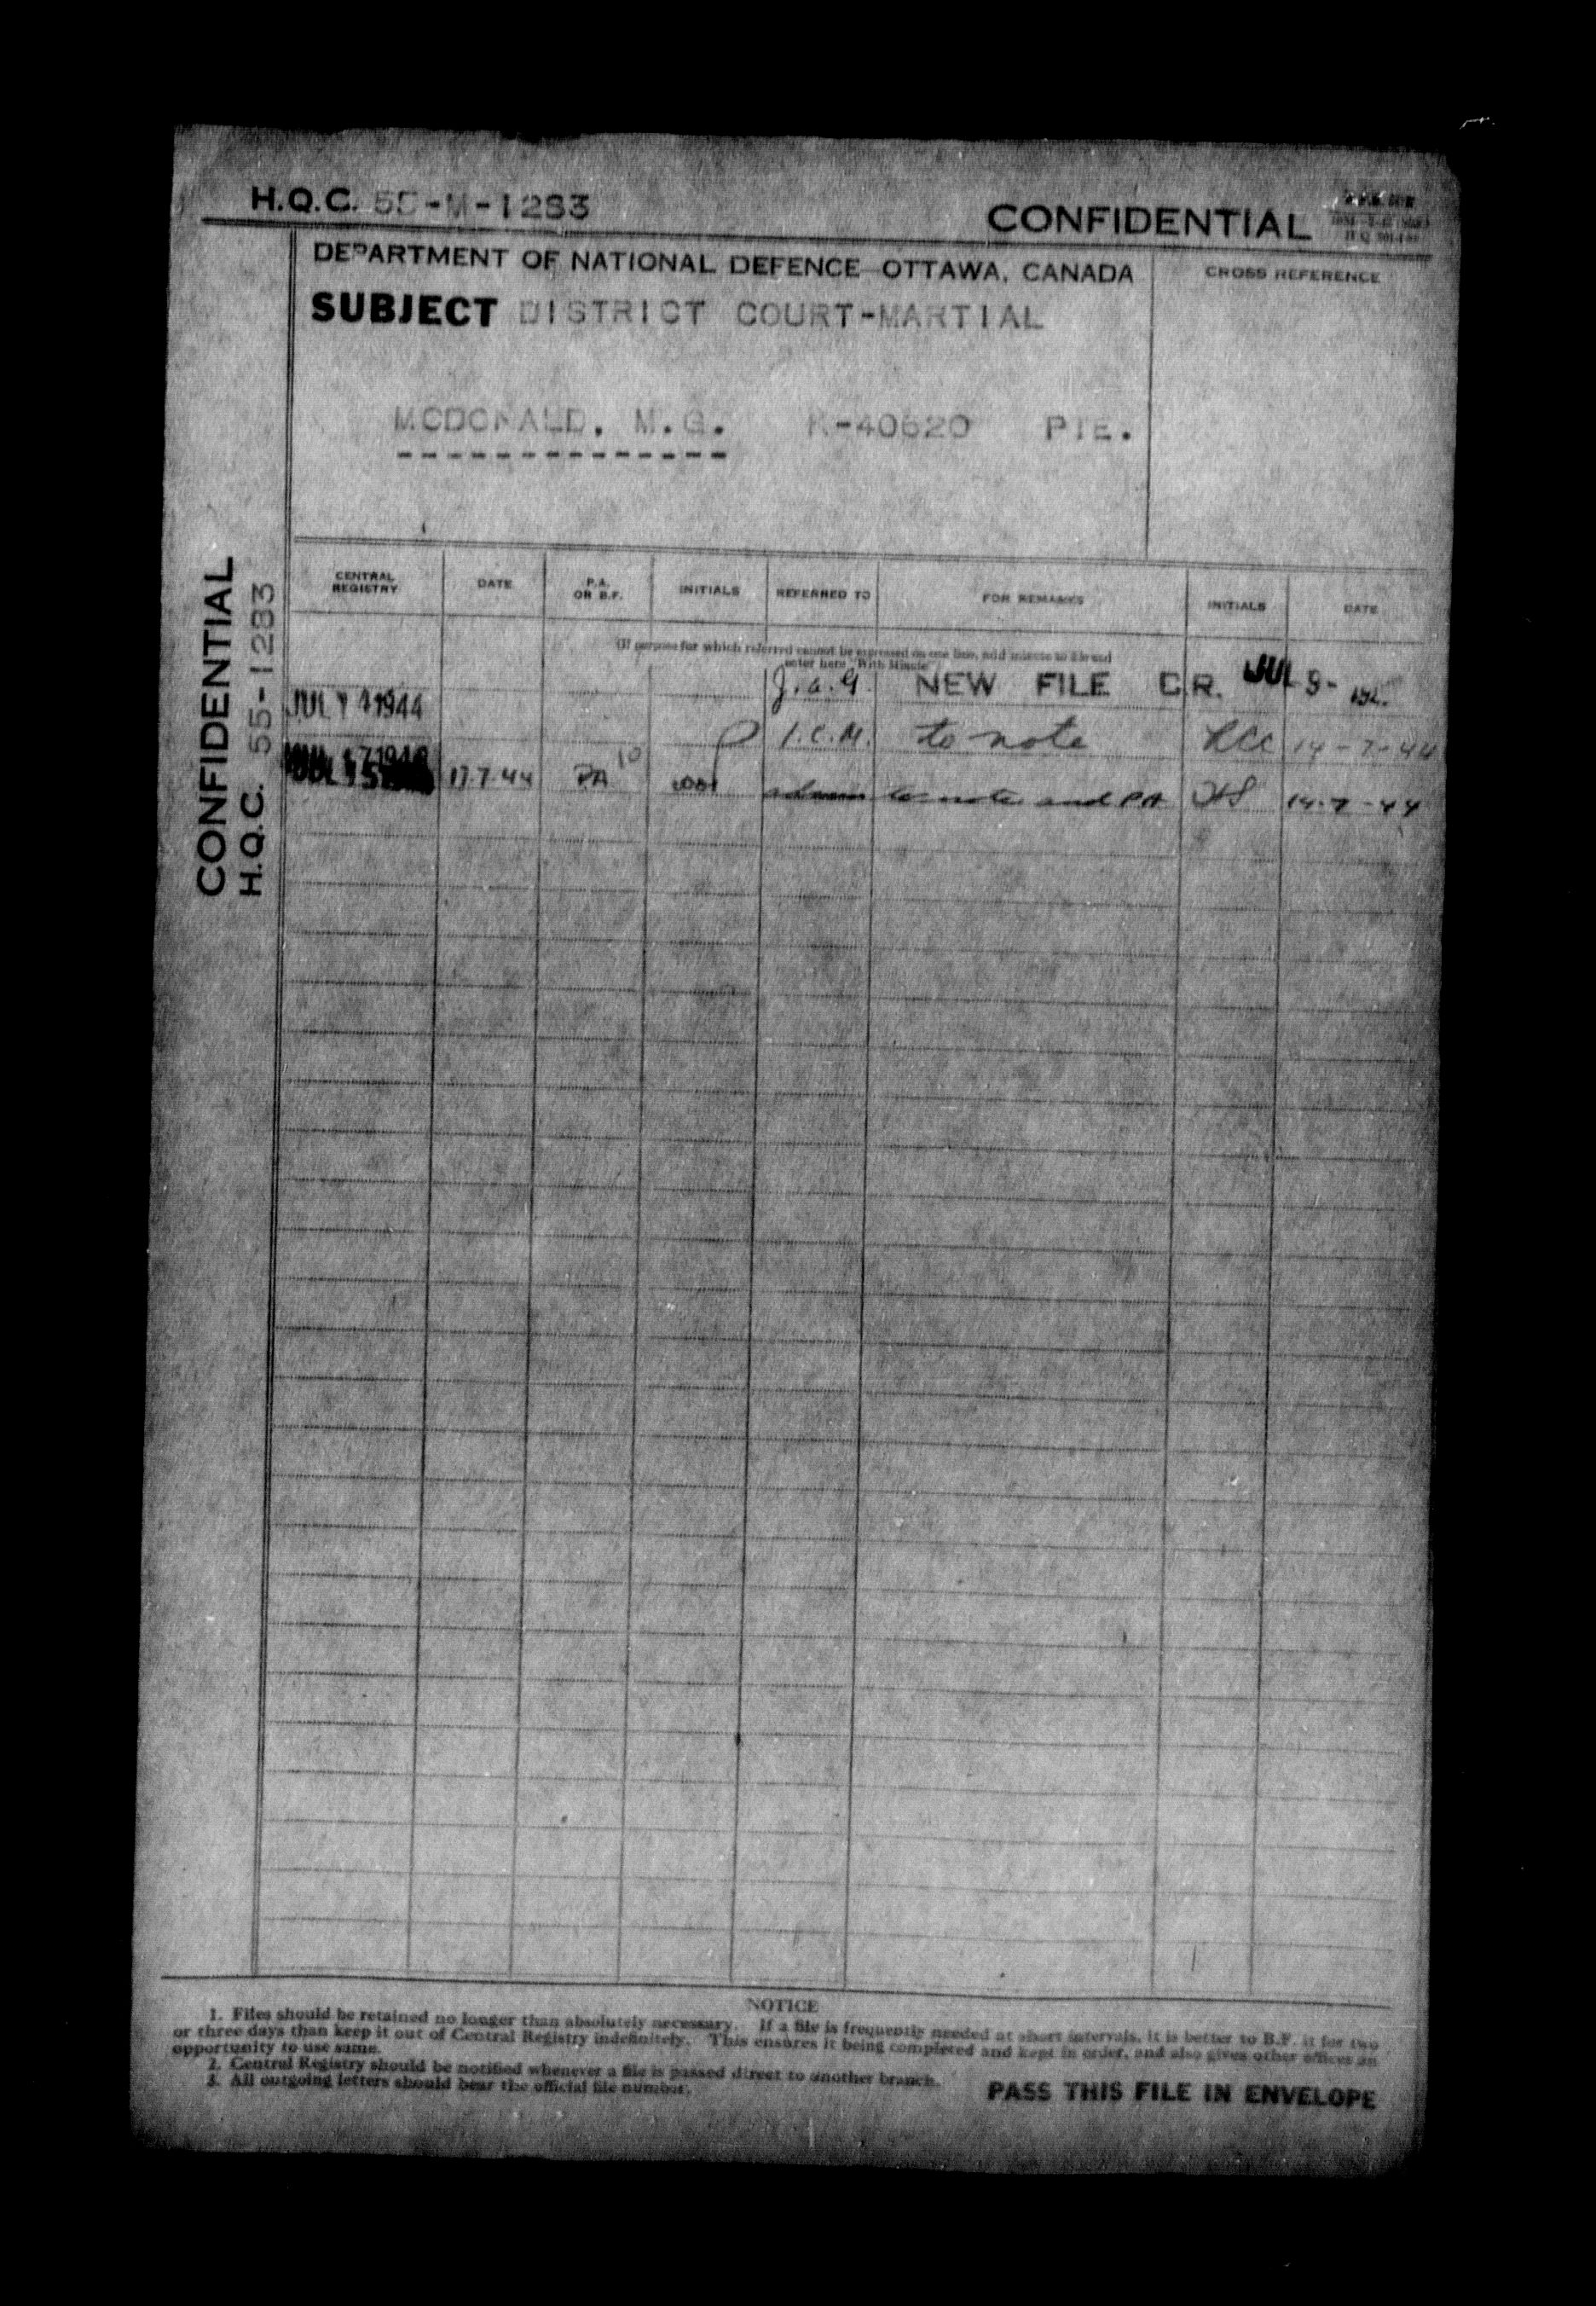 H.Q.C. 55-M-1283
CONFIDENTIAL
DEPARTMENT OF NATIONAL DEFENCE OTTAWA, CANADA
CROSS REFERENCE
SUBJECT DISTRICT COURT-MARTIAL
MCDONALD. M.G. K-40620 PTE.
CONFIDENTIAL
H.Q.C. 55-1283
CENTRAL REGISTRY DATE P.A. OR B.F. INITIALS REFERRED TO FOR REMARKS INITIALS DATE
(If purpose for which referred cannot be expressed on one line, add minute to file and
enter here "With Minute")
J.A.G. NEW FILE C.R. JUL 9-
JUL 1 4 1944
to note 14-7-44
17.7.44 PA 10 admin to note and PA 14-7-44
NOTICE
1. Files should be retained no longer than absolutely necessary. If a file is frequently needed at short intervals, it is better to B.F. it for two
or three days than keep it out of Central Registry indefinitely. This ensures it being completed and kept in order, and also gives other offices an
opportunity to use same.
2. Central Registry should be notified whenever a file is passed direct to another branch.
3. All outgoing letters should bear the official file number.
PASS THIS FILE IN ENVELOPE